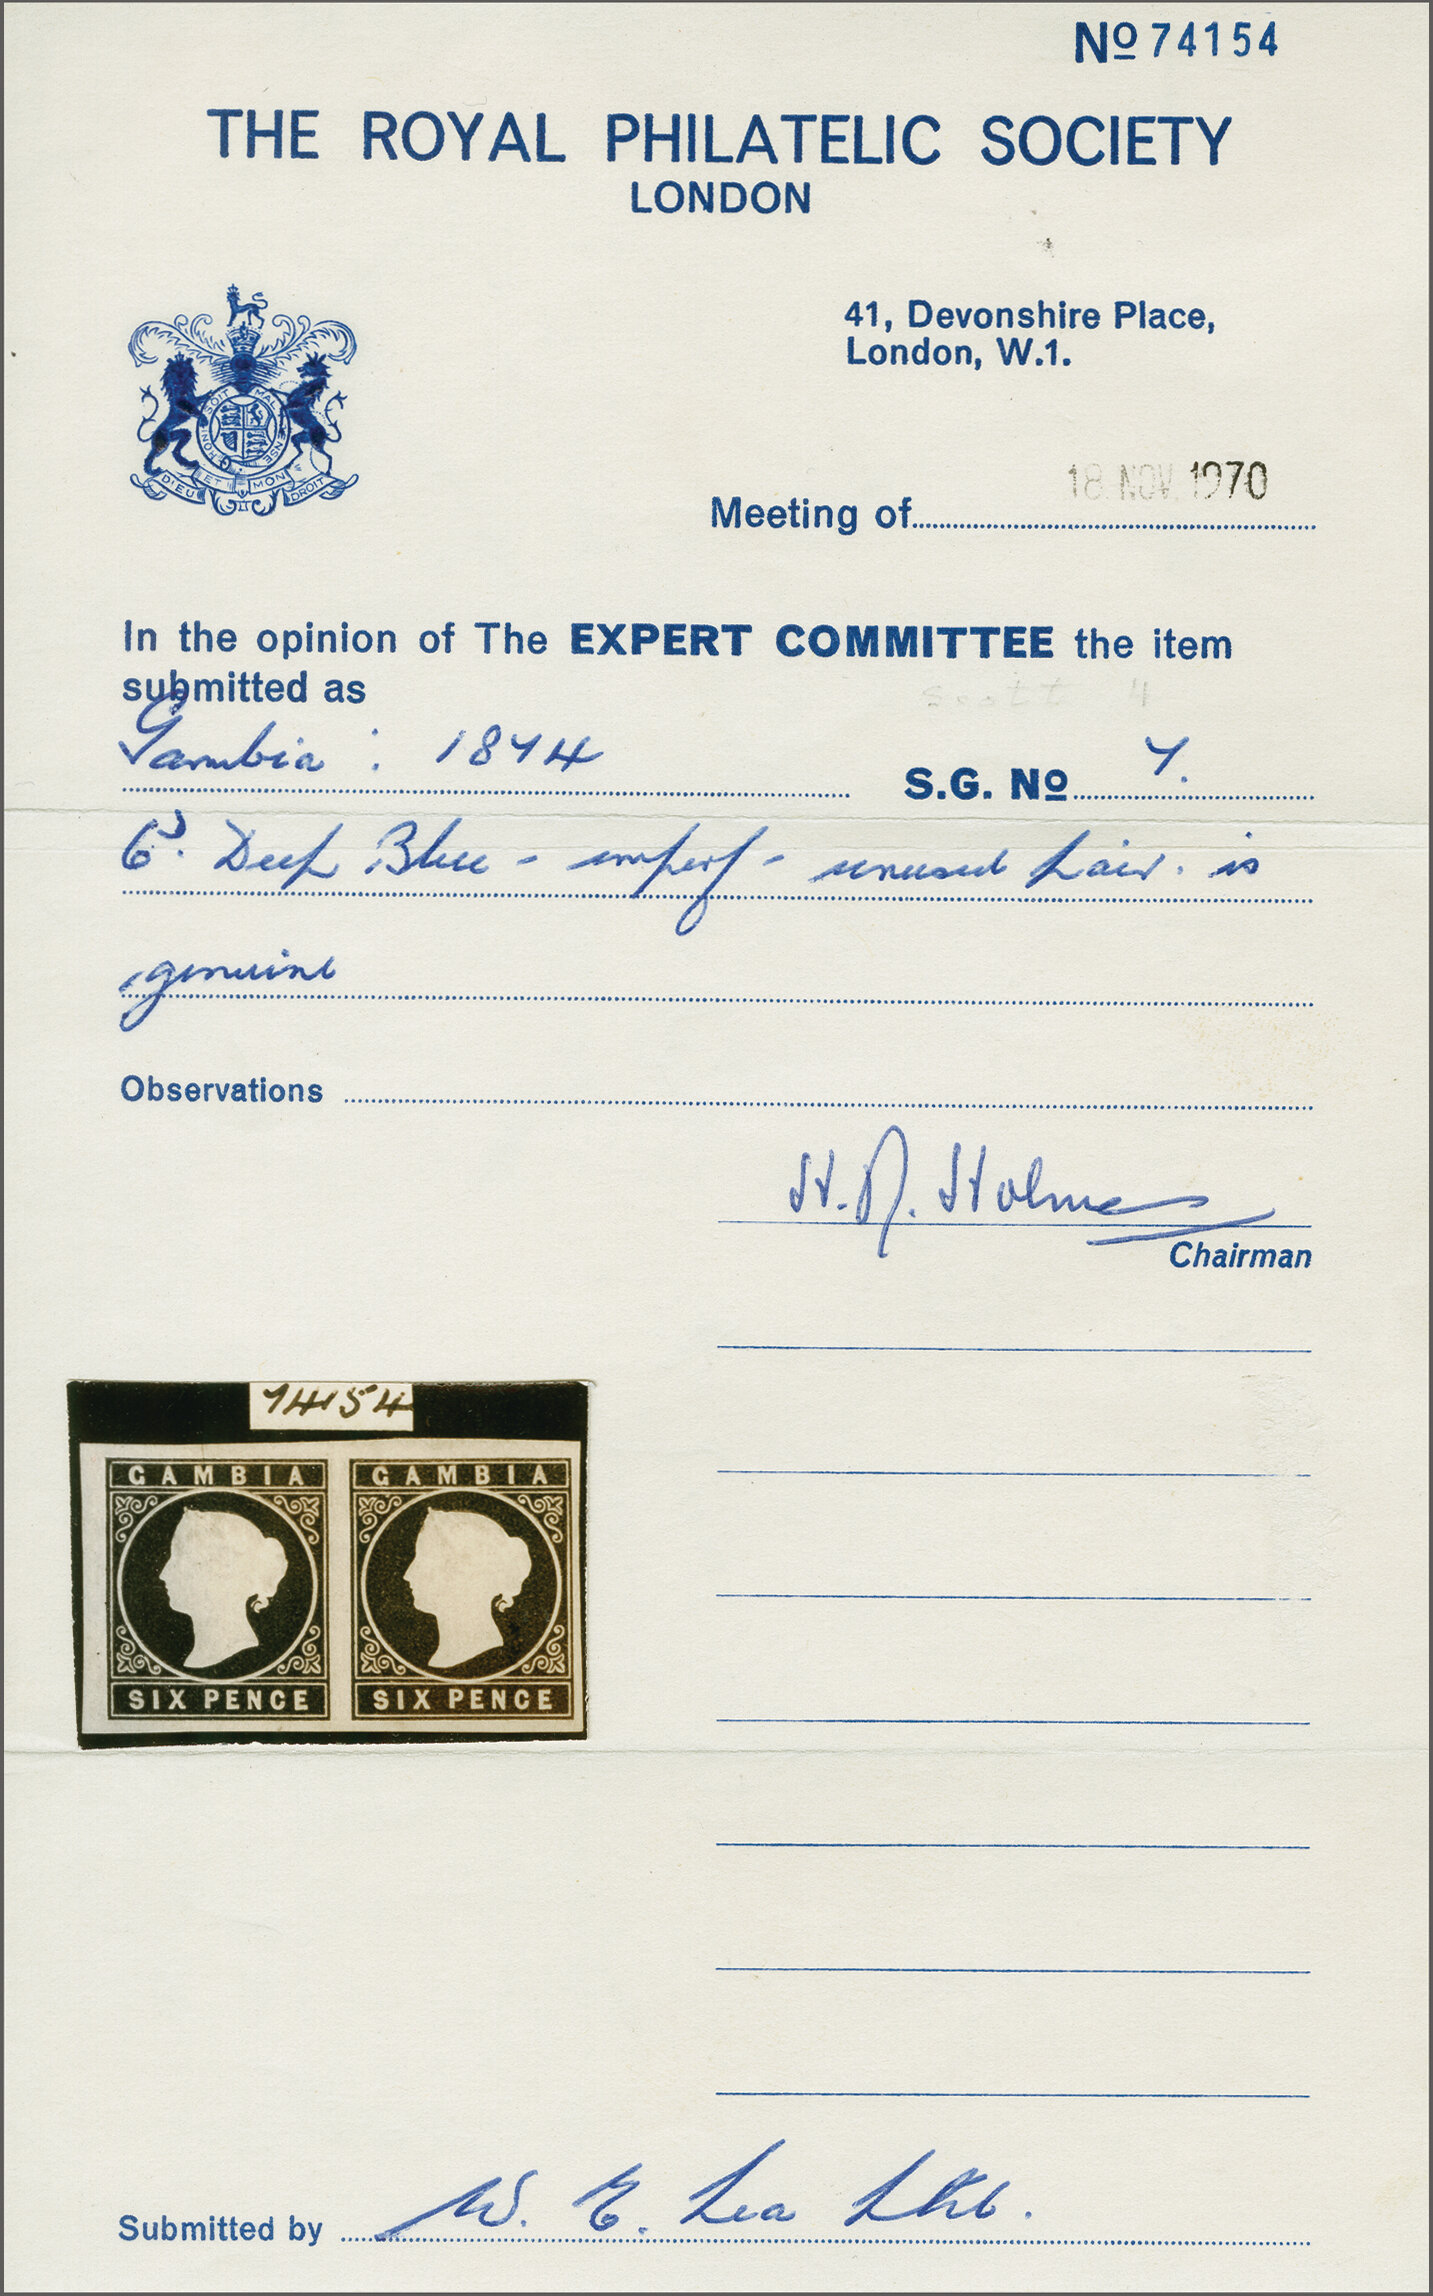 Nº 74154
THE ROYAL PHILATELIC SOCIETY
LONDON
41, Devonshire Place,
London, W.1.
HONI SOIT MAL PENSE
DIEU ET MON DROIT
Meeting of 18 NOV. 1970
In the opinion of The EXPERT COMMITTEE the item
submitted as
Scott 4
Gambia : 1874 S.G. Nº 7.
6d. Deep Blue - imperf - unused pair. is
genuine
Observations
H. R. Holmes
Chairman
74154
GAMBIA GAMBIA
SIX PENCE SIX PENCE
Submitted by W. E. Lea Ltd.